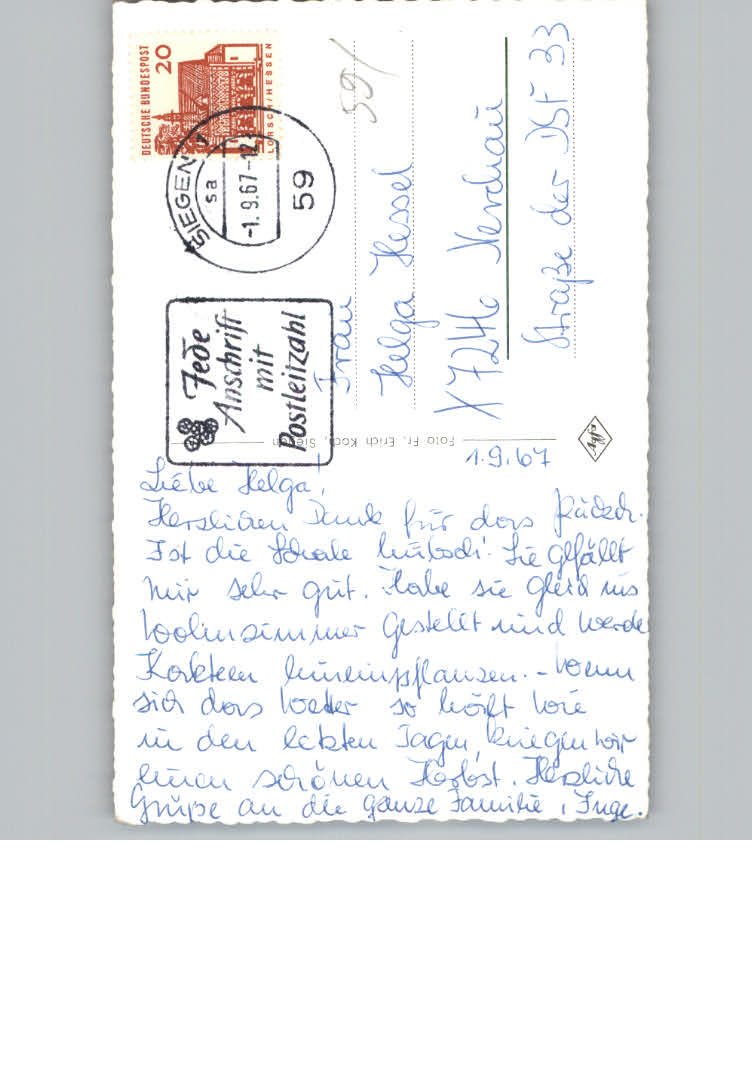 1.9.67
Liebe Helga!
Herzlichen Dank für das Päckch.
Ist die Schale hübsch! Sie gefällt
mir sehr gut. Habe sie gleich ins
Wohnzimmer gestellt und werde
Kakteen hineinpflanzen. - Wenn
sich das Wetter so hält wie
in den letzten Tagen, kriegen wir
einen schönen Herbst. Herzliche
Grüße an die ganze Familie, Inge.
Foto Fr. Erich Koch, Siegen
agfa
DEUTSCHE BUNDESPOST
20
LORSCH/HESSEN
SIEGEN 1
sa
-1.9.67-12
59
Jede
Anschrift
mit
Postleitzahl
59/
Frau
Helga Hessel
X 7246 Nerchau
Straße der DSF 33